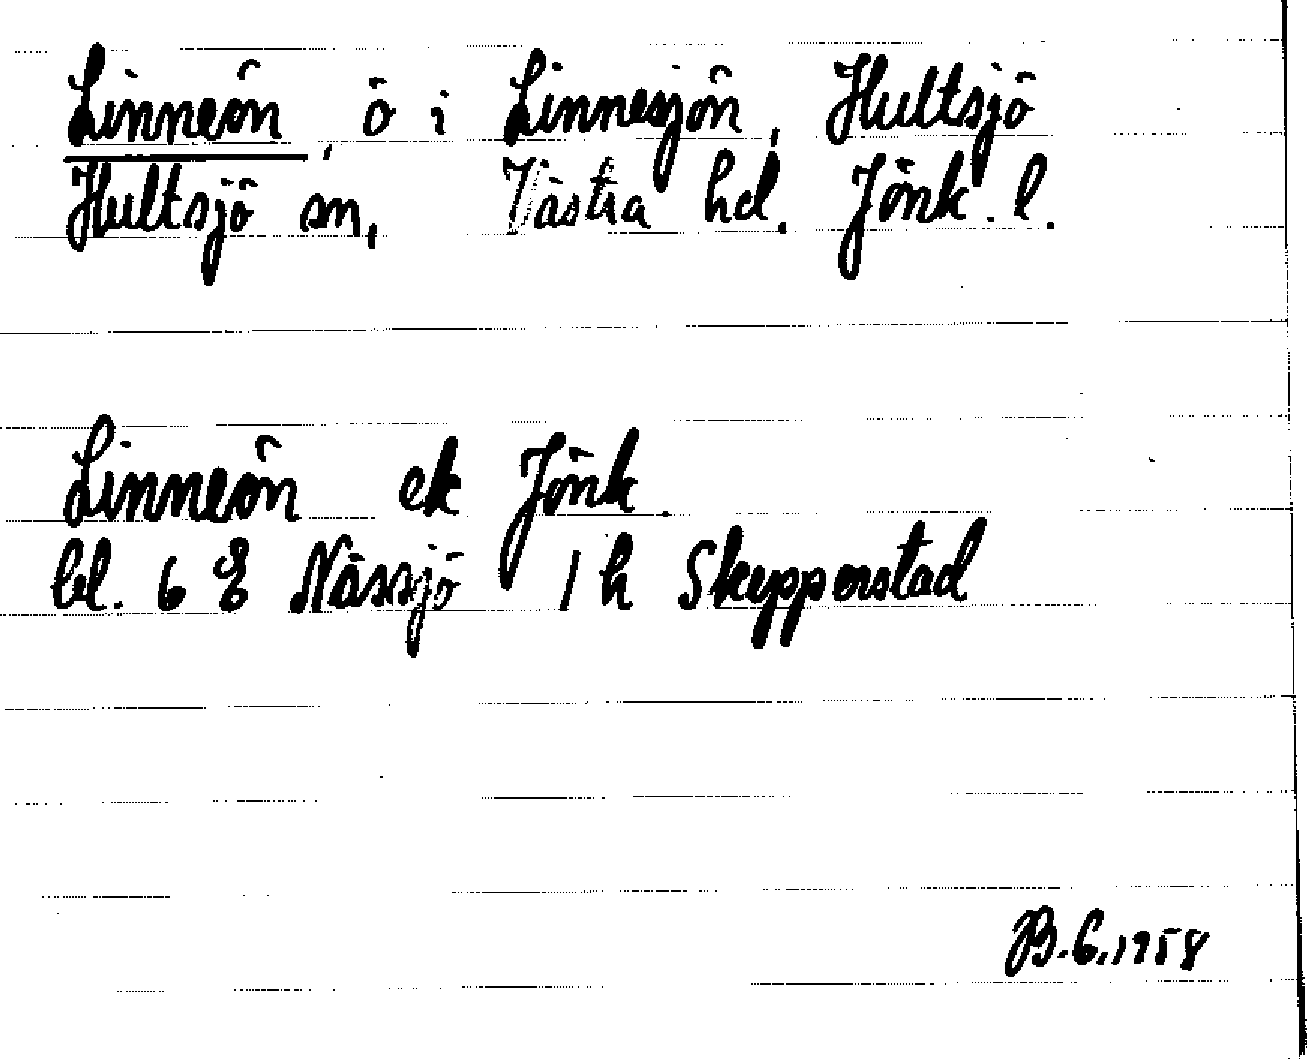 Linneön, ö i Linnesjön, Hultsjö
Hultsjö sn, Västra hd. Jönk. l.
Linneön ek Jönk.
bl. 6 E Nässjö 1 h Skepperstad
B.G. 1958